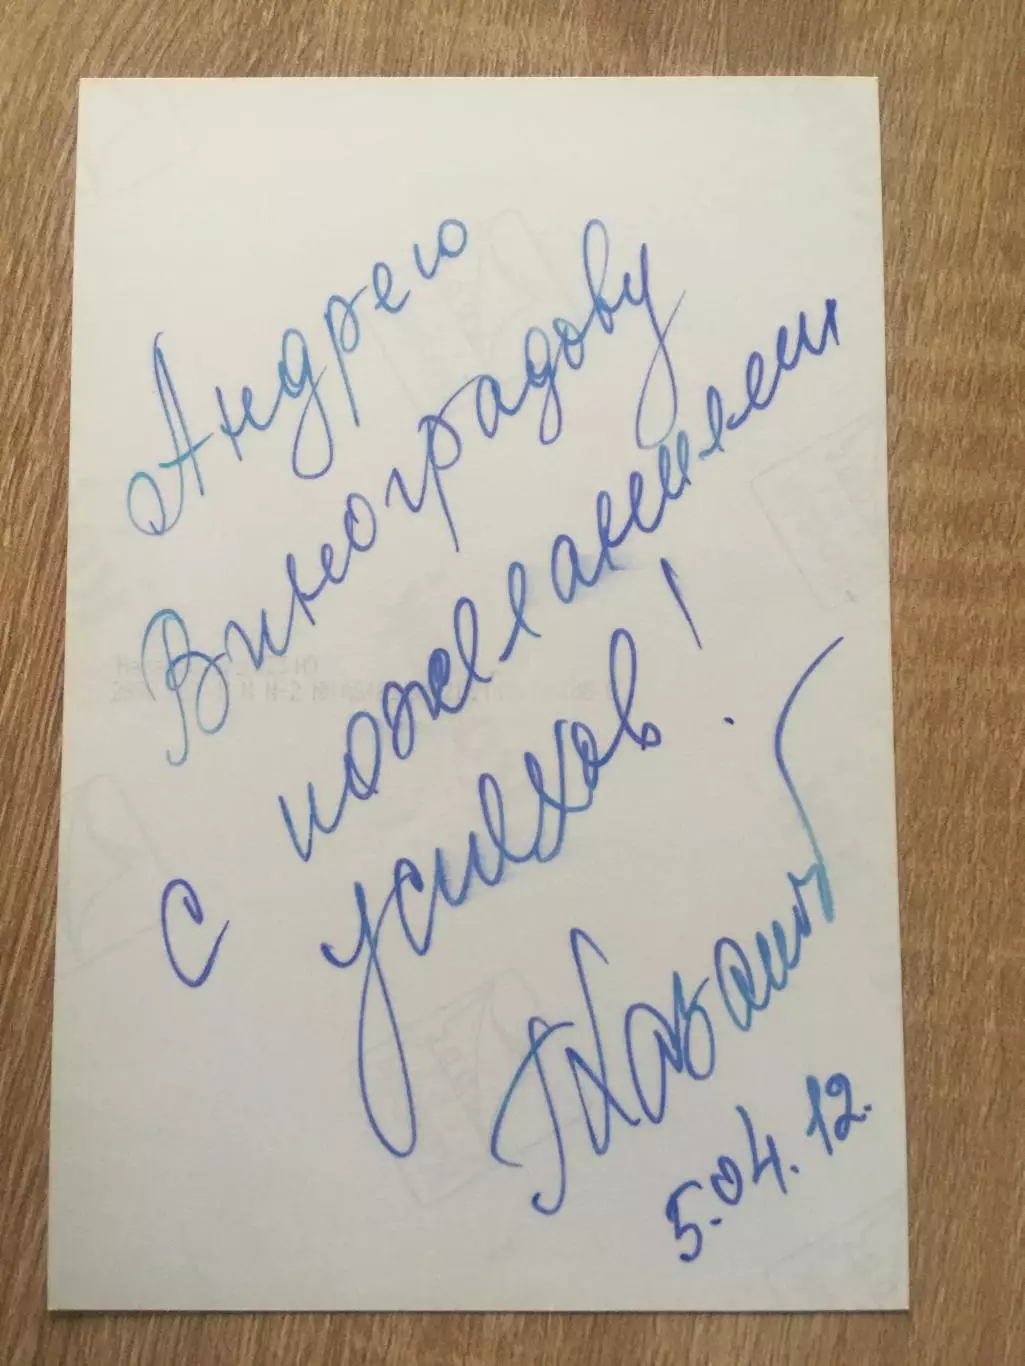 Андрею
Виноградову
с пожеланием
успехов!
5.04.12.